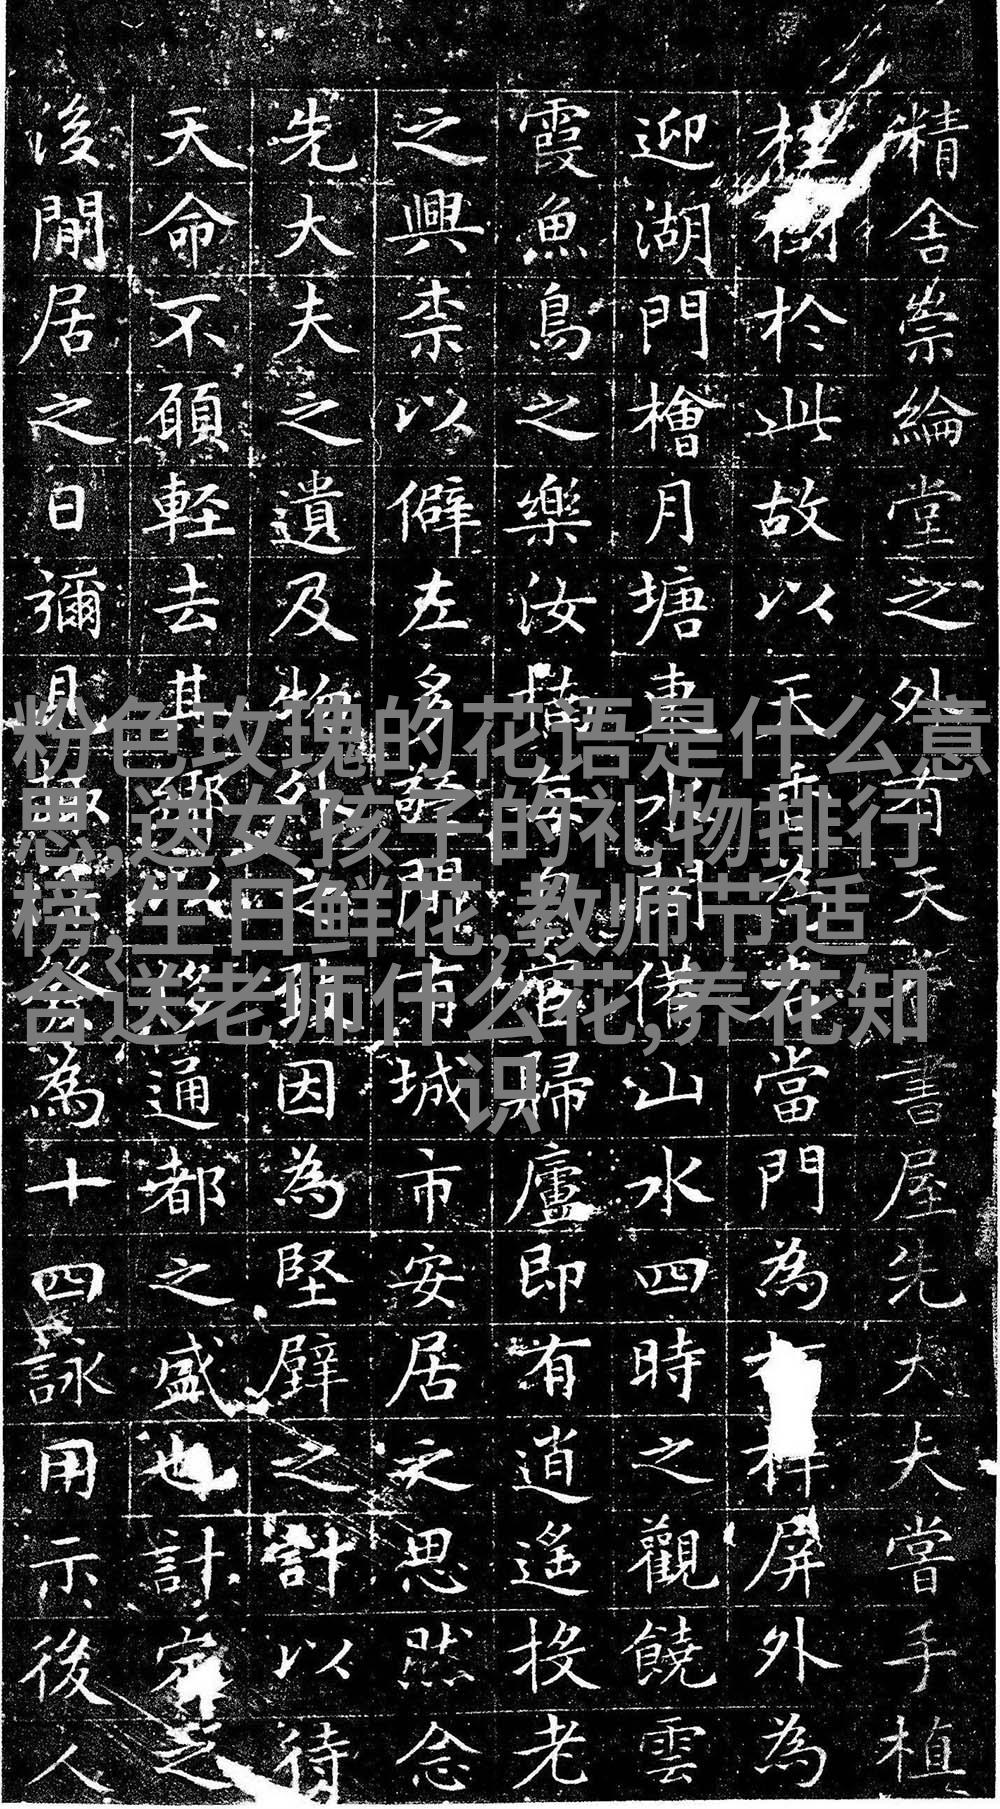 精舍崇綸堂之外有天書屋先大夫嘗手植
桂樹於此故以天香當門為屏外為
迎湖門檜月塘東水閣備山水四時之觀饒雲
霞魚鳥之樂汝楷每自官歸廬即有逍遙投老
之興柰以僻左多城市安居之思然念
先大夫之遺及物之因為堅壁之計以待
天命不願輕去其鄉以移通都之盛也計定之
後閒居之日彌見為十四詠用示後人
粉色玫瑰的花语是什么意
思,送女孩子的礼物排行
榜,生日鲜花,教师节适
合送老师什么花,养花知
识